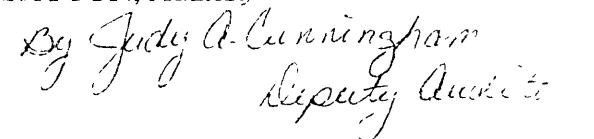 By Judy A. Cunningham
Deputy Auditor